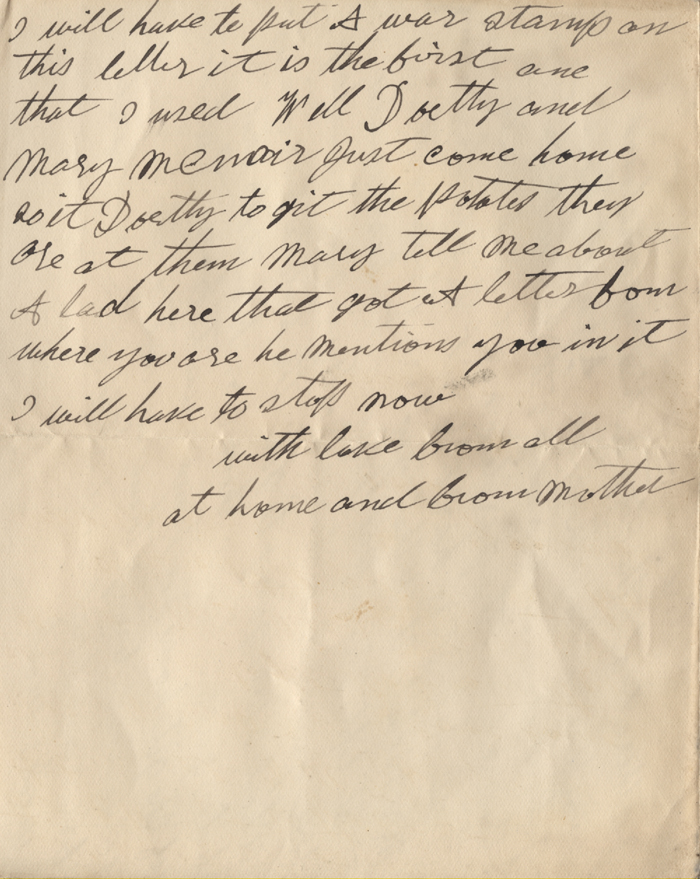 I will have to put A war stamp on
this letter it is the first one
that I used Well Dortty and
Mary Mcnair Just come home
soit Dortty to git the potates they
are at them Mary tell me about
A lad here that got A letter from
where you are he mentions you in it
I will have to stop now
with love from all
at home and from Mother